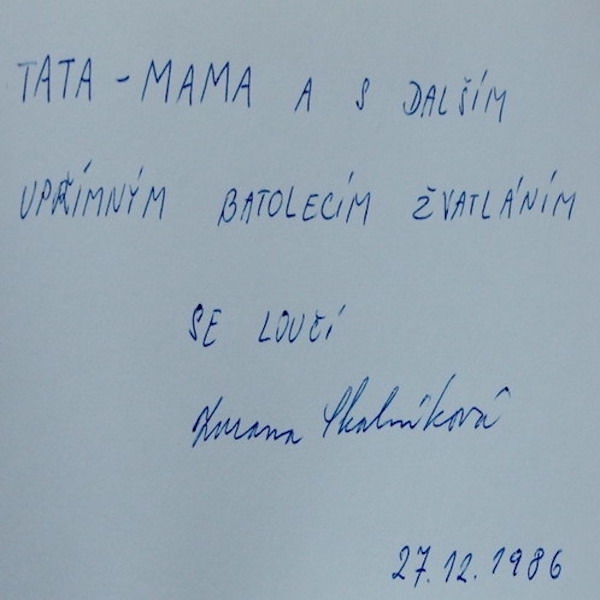 TATA - MAMA A S DALŠÍM
UPŘÍMNÝM BATOLECÍM ŽVATLÁNÍM
SE LOUČÍ
Zuzana Skalníková
27.12.1986